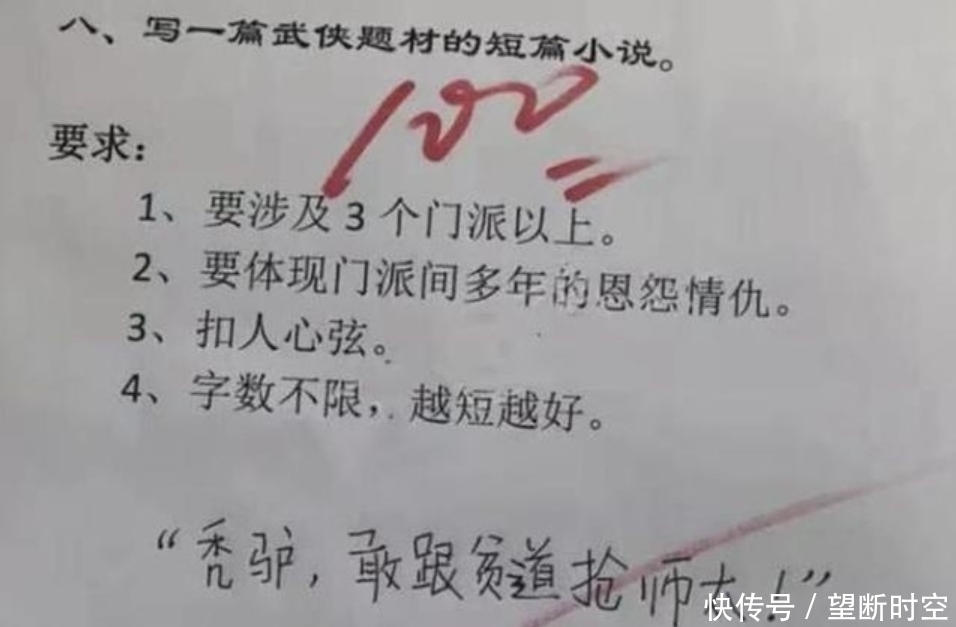 八、写一篇武侠题材的短篇小说。
100
要求：
1、要涉及3个门派以上。
2、要体现门派间多年的恩怨情仇。
3、扣人心弦。
4、字数不限，越短越好。
“秃驴，敢跟贫道抢师太！”
快传号/望断时空